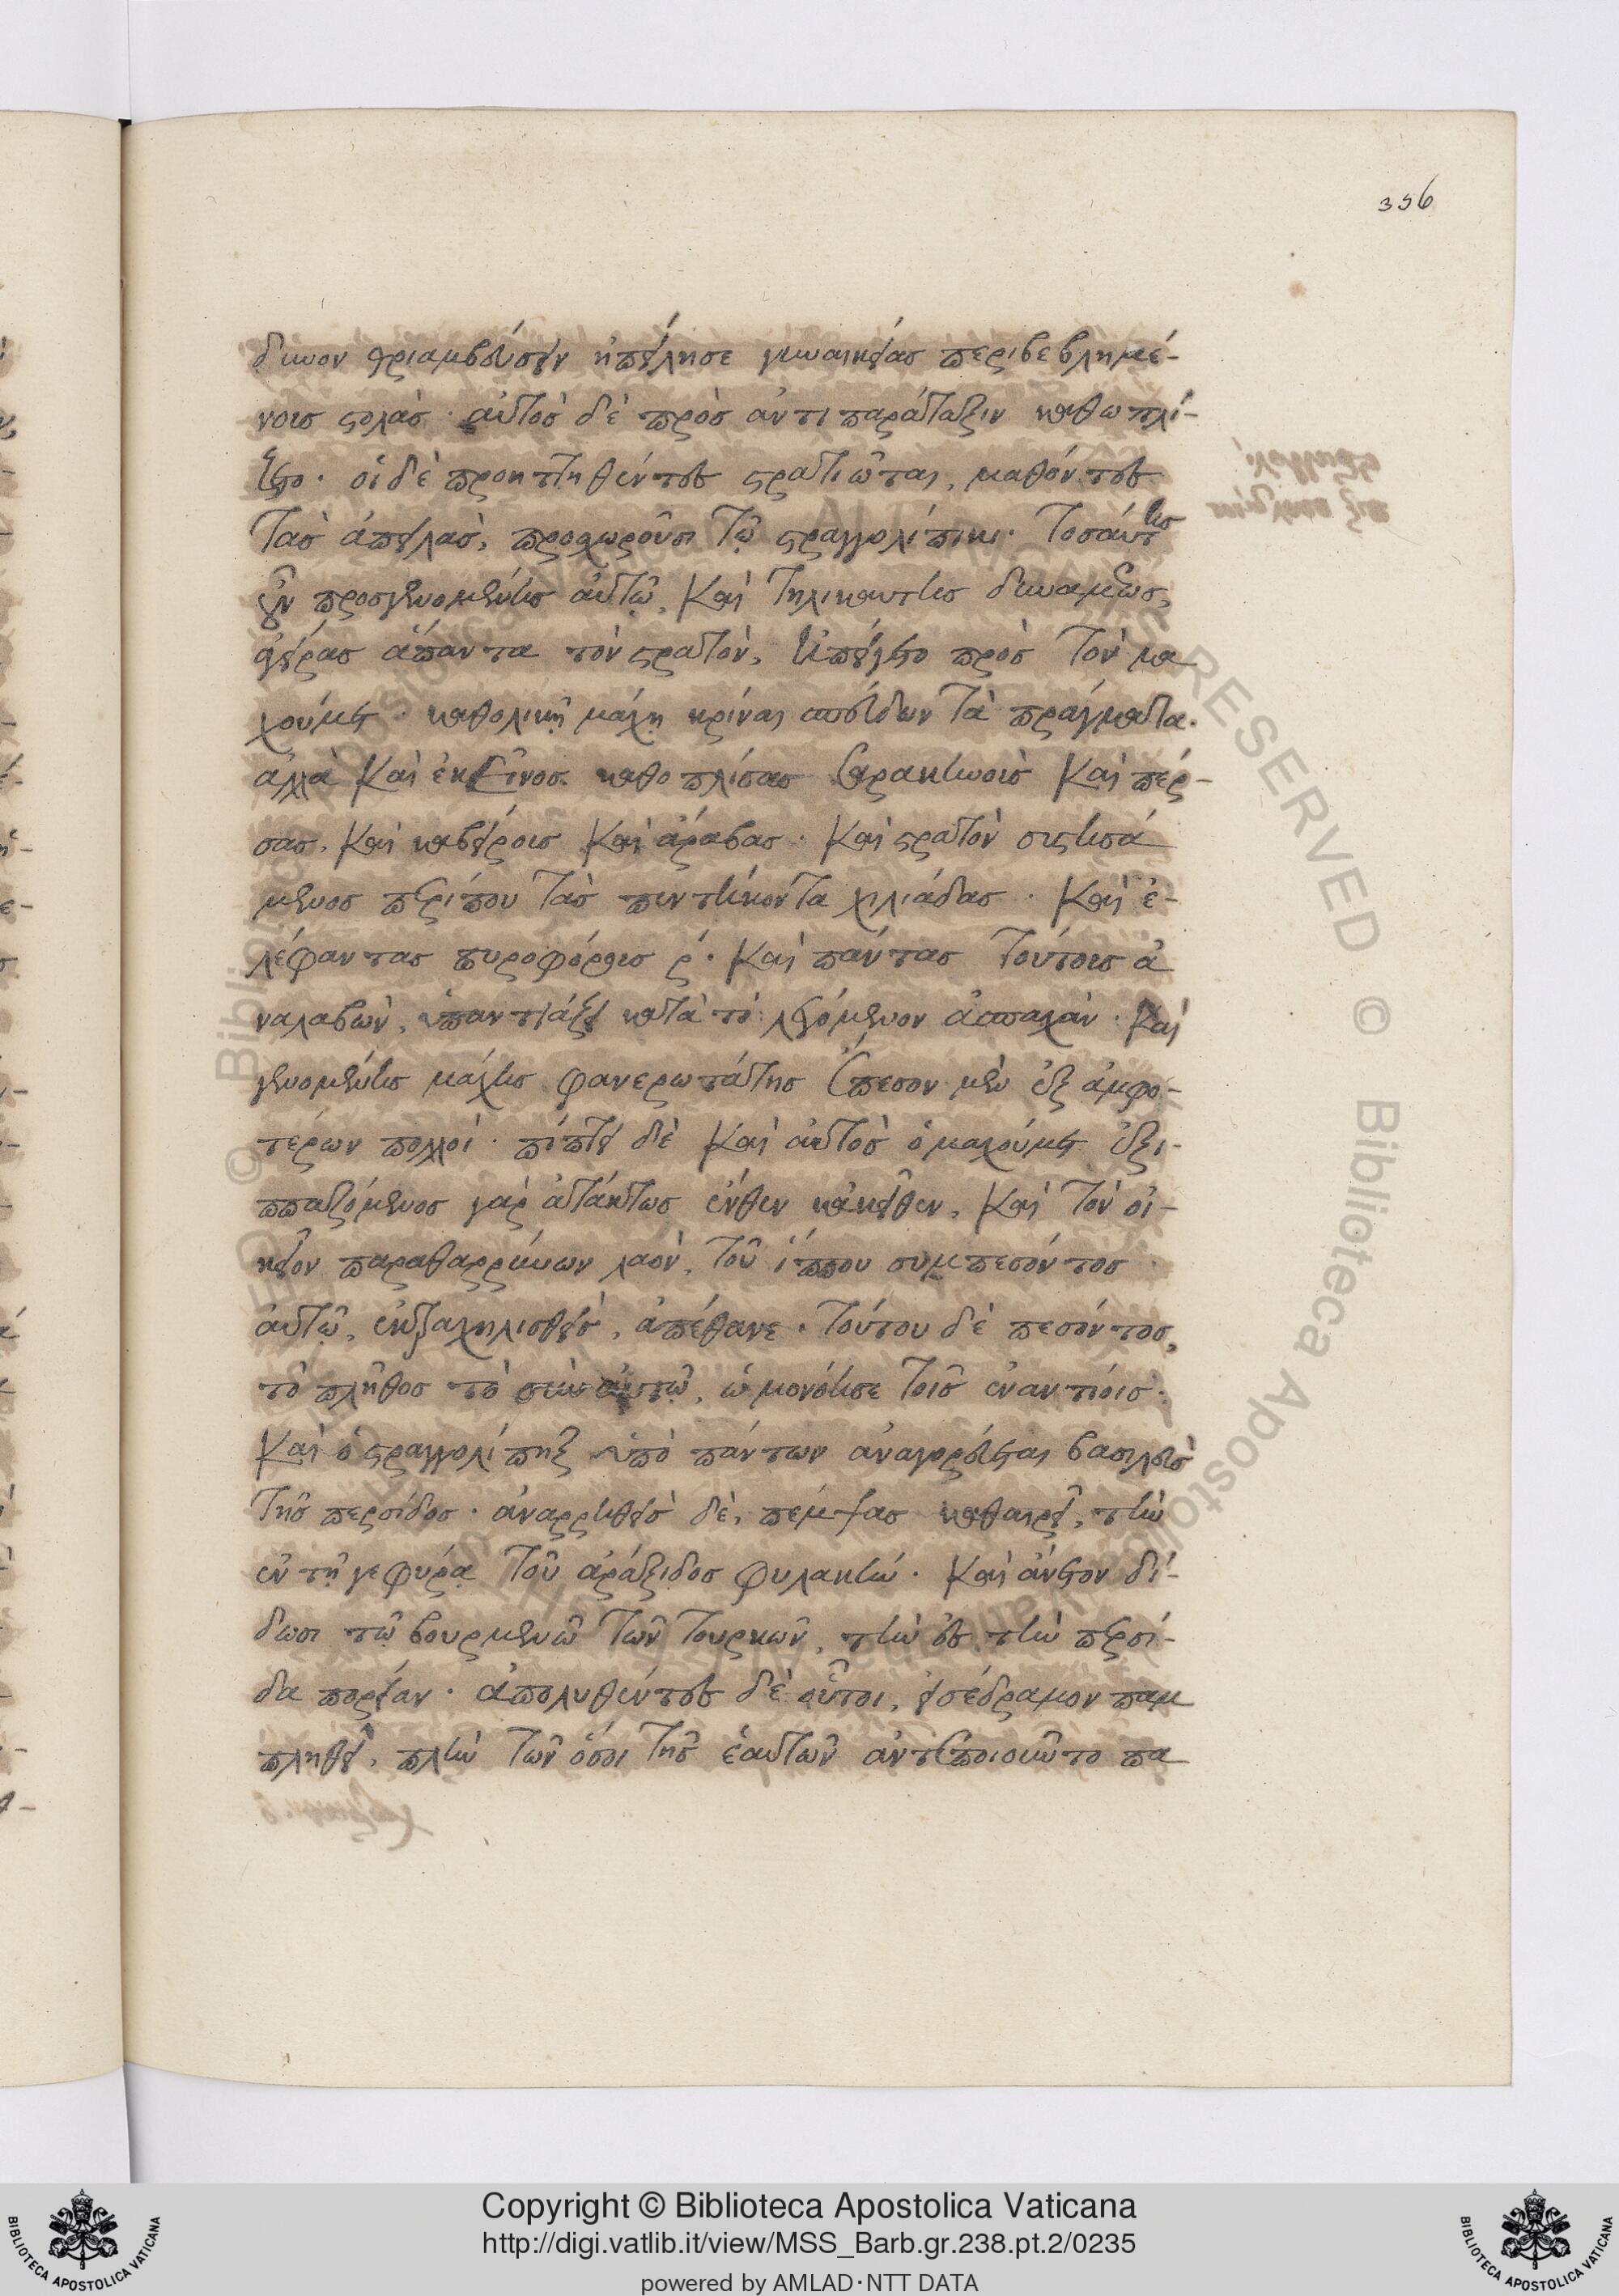 356
δινον θριαμβεύσειν ἠπείλησε γυναικείας περιβεβλημέ-
νοις στολὰς · αὐτὸς δὲ πρὸς ἀντιπαράταξιν καθωπλί-
ζετο · οἱ δὲ προηττηθέντες στρατιῶται, μαθόντες
τὰς ἀπειλὰς, προσχωροῦσι τῷ στραγγολίπικι · τοσαύτης
οὖν προσγενομένης αὐτῷ καὶ τηλικαύτης δυνάμεως,
ἄρας ἅπαντα τὸν στρατὸν, ἠπείγετο πρὸς τὸν μα
χούμετ · καθολικῇ μάχῃ κρῖναι σπεύδων τὰ πράγματα.
ἀλλὰ καὶ ἐκεῖνος καθοπλίσας σαρακηνοὺς καὶ πέρ-
σας, καὶ καβείρους καὶ ἄραβας · καὶ στρατὸν συστησά
μενος περίπου τὰς πεντήκοντα χιλιάδας · καὶ ἐ-
λέφαντας πυροφόρους ρ · καὶ πάντας τούτους ἀ
ναλαβὼν, ὑπαντιάζει κατὰ τὸ λεγόμενον ἀσπαχὰν · καὶ
γενομένης μάχης φανερωτάτης ἔπεσον μὲν ἐξ ἀμφο-
τέρων πολλοί · πίπτει δὲ καὶ αὐτὸς ὁ μαχούμετ ἐξι-
ππαζόμενος γὰρ ἀτάκτως ἔνθεν κἀκεῖθεν, καὶ τὸν οἰ-
κεῖον παραθαρρύνων λαὸν, τοῦ ἵππου συμπεσόντος
αὐτῷ, ἐκτραχηλισθεὶς, ἀπέθανε · τούτου δὲ πεσόντος,
τὸ πλῆθος τὸ σὺν αὐτῷ, ὡμονόησε τοῖς ἐναντίοις ·
καὶ ὁ στραγγολίπηξ ὑπὸ πάντων ἀναγορεύεται βασιλεὺς
τῆς περσίδος · ἀναρρηθεὶς δὲ, πέμψας καθαιρεῖ, τὴν
ἐν τῇ γεφύρᾳ τοῦ ἀράξιδος φυλακήν · καὶ ἄνετον δί-
δωσι τῷ βουλομένῳ τῶν τουρκῶν, τὴν εἰς τὴν περσί-
δα πορείαν · ἀπολυθέντες δὲ οὗτοι, εἰσέδραμον παμ
πληθεὶ, πλὴν τῶν ὅσοι τῆς ἑαυτῶν ἀντεποιοῦντο πα
Copyright © Biblioteca Apostolica Vaticana
http://digi.vatlib.it/view/MSS_Barb.gr.238.pt.2/0235
powered by AMLAD·NTT DATA